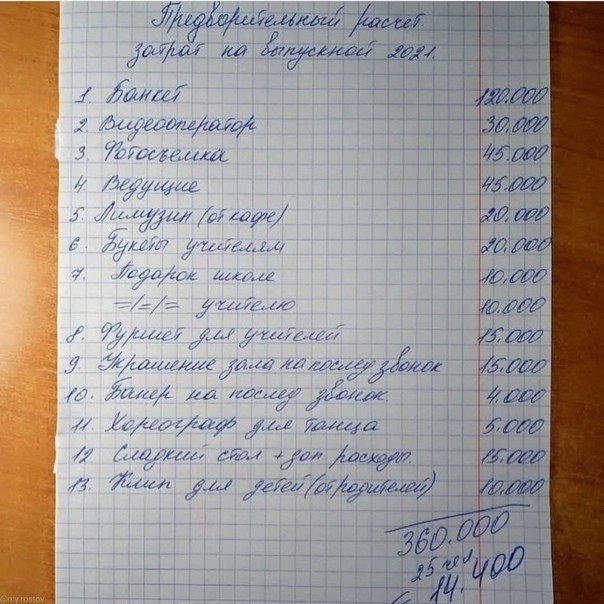 Предворительный расчет.
затрат на выпускной 2021.
1. Банкет 120.000
2 Видеооператор 30.000
3. Фотосъемка 45.000
4. Ведущие 45.000
5. Лимузин (от кафе) 20.000
6. Букеты учителям 20.000
7. Подарок школе 10.000
=/=/= учителю 10.000
8. Фуршет для учителей 15.000
9. Украшение зала на послед звонок 15.000
10. Банер на послед звонок 4.000
11. Хореограф для танца 5.000
12 Сладкий стол + доп расходы. 15.000
13. Клип для детей (от родителей) 10.000
360.000
25 чел
14.400
my-rostov